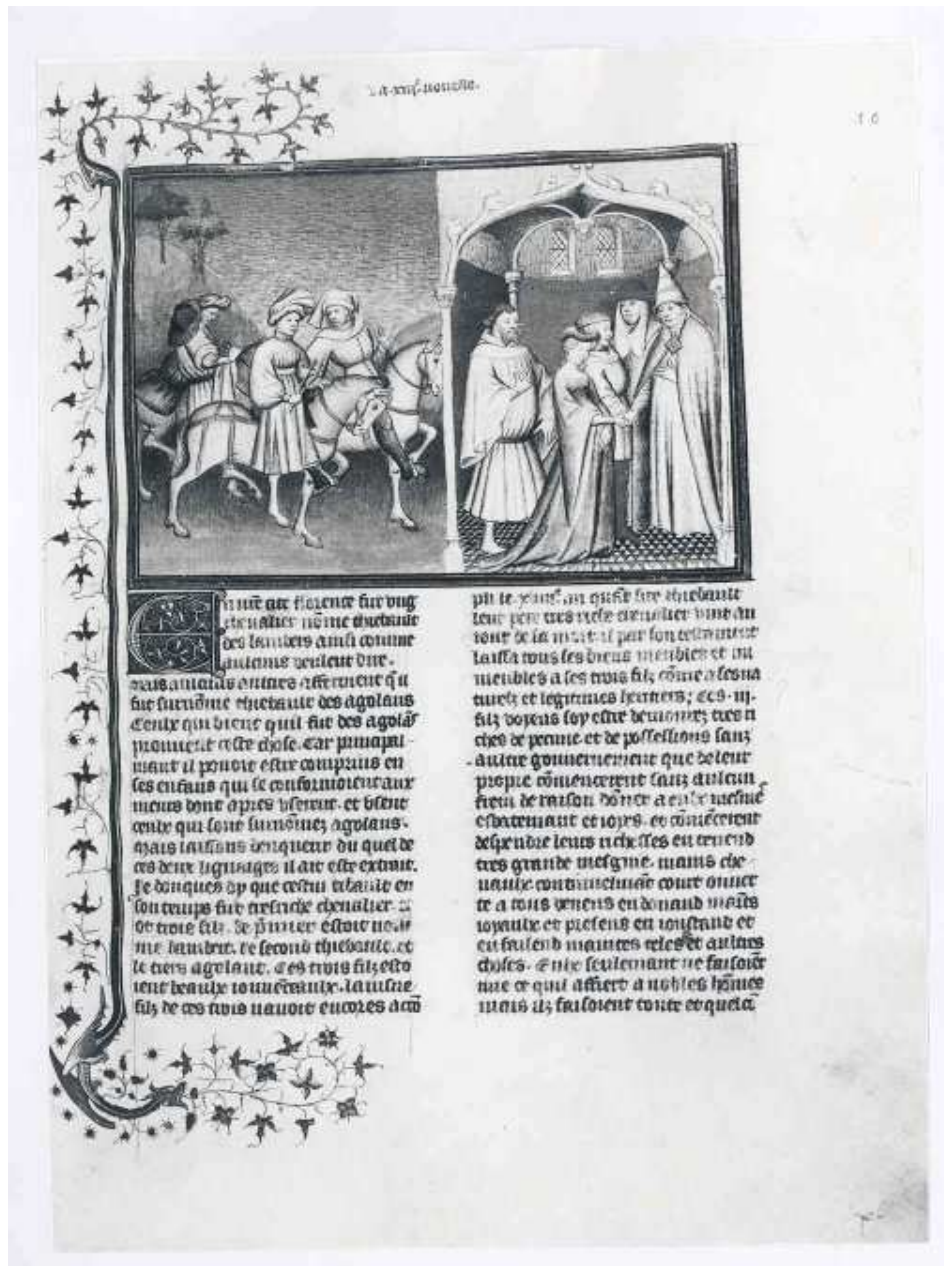 nouvelle.
En nrē cite florence fut vng
cheualier nōme thiebault
des lambers ainsi comme
aulcuns veulent dire.
Mais aulcuns aultres afferment q̄ il
fut surnōme thiebault des agolans
Ceulx qui dient quil fut des agolās
prouuent ceste chose. Car principal
mant il pouoit estre comprins en
ses enfans qui se conformoient aux
meurs dont apres vserent. et vsent
ceulx qui sont surnōmez agolans.
Mais laissons lenquerir du quel de
ces deux lignaiges il ait este extrait.
Je donques dy que cestui tibault en
son temps fut tresriche cheualier
et trois filz. le p̄mier estoit nom
me lambert. le second thiebault. et
le tiers agolant. Ces trois filz esto
ient beaulx iouuenceaulx. laisne
filz de ces trois nauoit encores acō
pli le an quāt sire thiebault
leur pere tres riche cheualier vint au
iour de la mort il par son testament
laissa tous ses biens meubles et im
meubles a ses trois filz cōme a ses na
turelz et legitimes heritiers; Ces .iij.
filz voyens soy estre demourez tres ri
ches de pecune et de possessions sanz
aultre gouuernement que de leur
propre cōmencerent sanz aulcun
frein de raison dōner a eulx mesmes
esbatemant et ioyes. et cōmēcerent
despendre leurs richesses en tenend
tres grande mesgnie. mains che
uaulx continuelmāt court ouuer
te a tous venens en donand maīts
ioyaulx et presens en ioustand et
en faisend maintes telez et aultres
choses. Eulx seulemant ne faisoiēt
mie ce quil affiert a nobles hōmes
mais ilz faisoient toute et quelcū